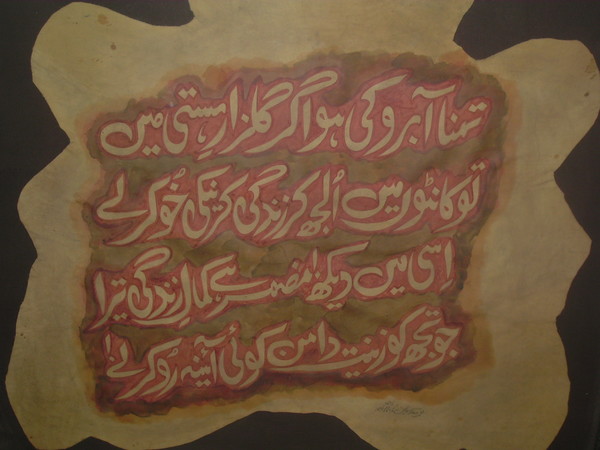 تمنا آبرو کی ہو اگر گلزارِ ہستی میں
تو کانٹوں میں اُلجھ کر زندگی کرنیکی خُو کر لے
اِسی میں دیکھ! مضمر ہے کمالِ زندگی تیرا
جو تجھ کو زینت دامن کوئی آئینہ رُو کر لے!